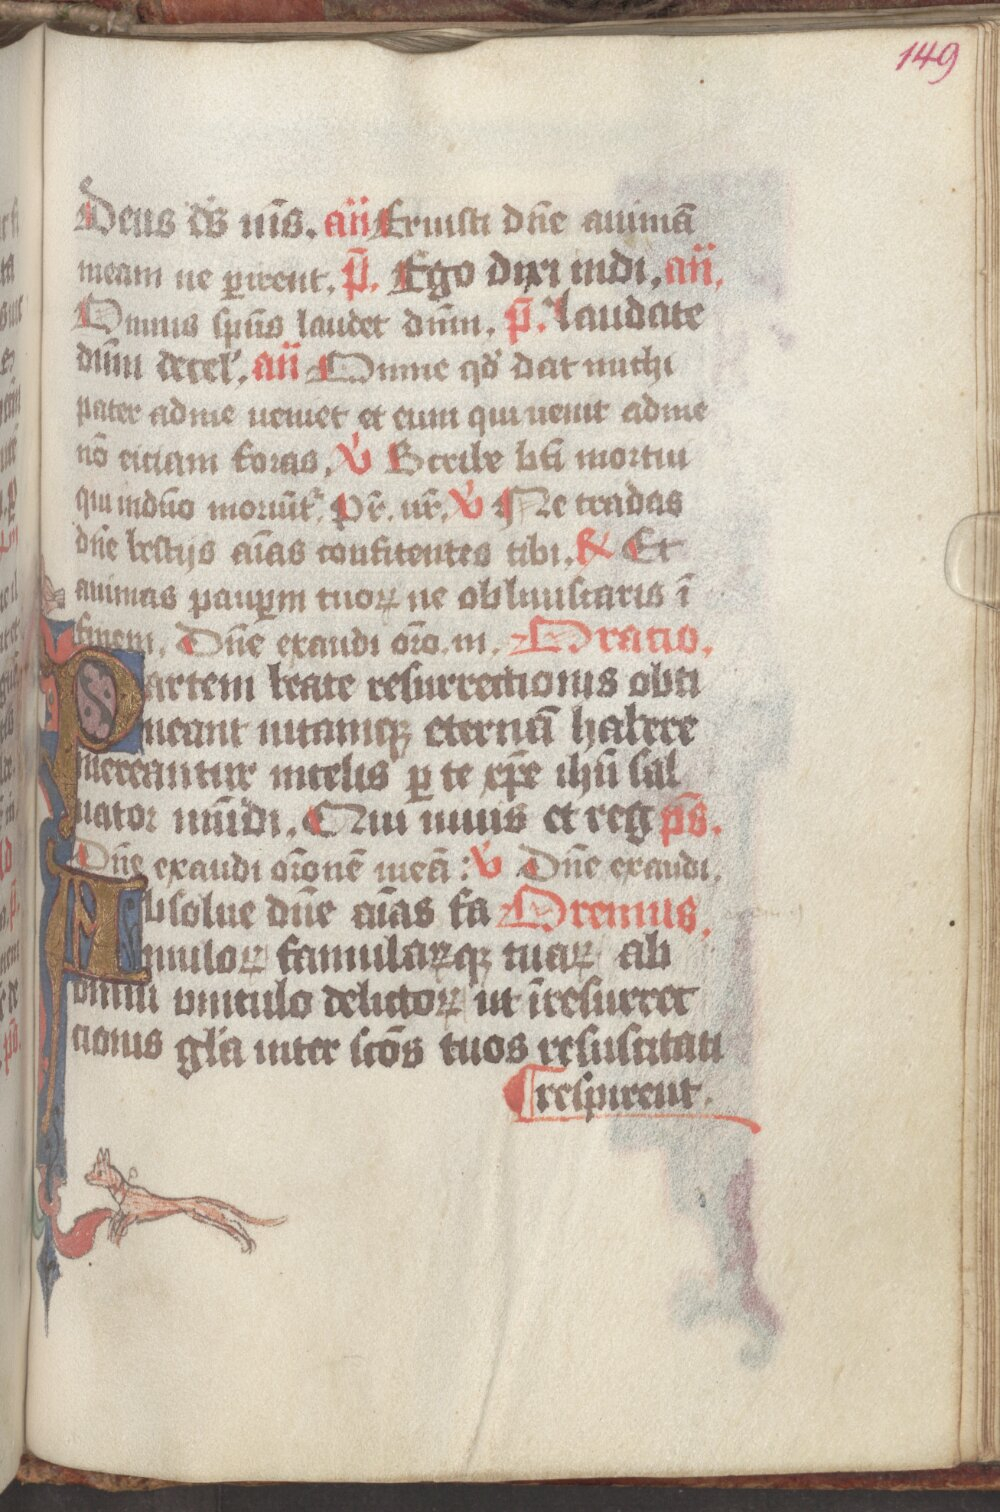 149
Deus ds̄ m̄s. an̄ Eruisti dn̄e animā
meam ne ꝑiret. p̄. Ego dixi indi. an̄.
Omnis sp̄us laudet dn̄m. p̄. laudate
dn̄m decel'. an̄ Omne qd' dat michi
pater adme ueniet et eum qui uenit adme
nō eiciam foras. V Scribe bt̄i mortui
qui indn̄o moriūt'. Pr̄. nr̄. V Ne tradas
dn̄e bestijs aīas confitentes tibi. R Et
animas pauꝑm tuoꝝ ne obliuiscaris ī
finem. Dn̄e exaudi orō. m. Oratio.
Partem beate resurrectionis obti
neant uitamqꝫ eternā habere
mereantur incelis ꝑ te xp̄e ihū sal
uator mūdi. Qui uiuis et reg p̄s.
Dn̄e exaudi orōnē meā : V Dn̄e exaudi.
Absolue dn̄e aīas fa Oremus.
muloꝝ famulaꝝqꝫ tuaꝝ ab
omni uinculo delictoꝝ ut īresurrec
tionis gl'ia inter scōs tuos resuscitati
respirent.